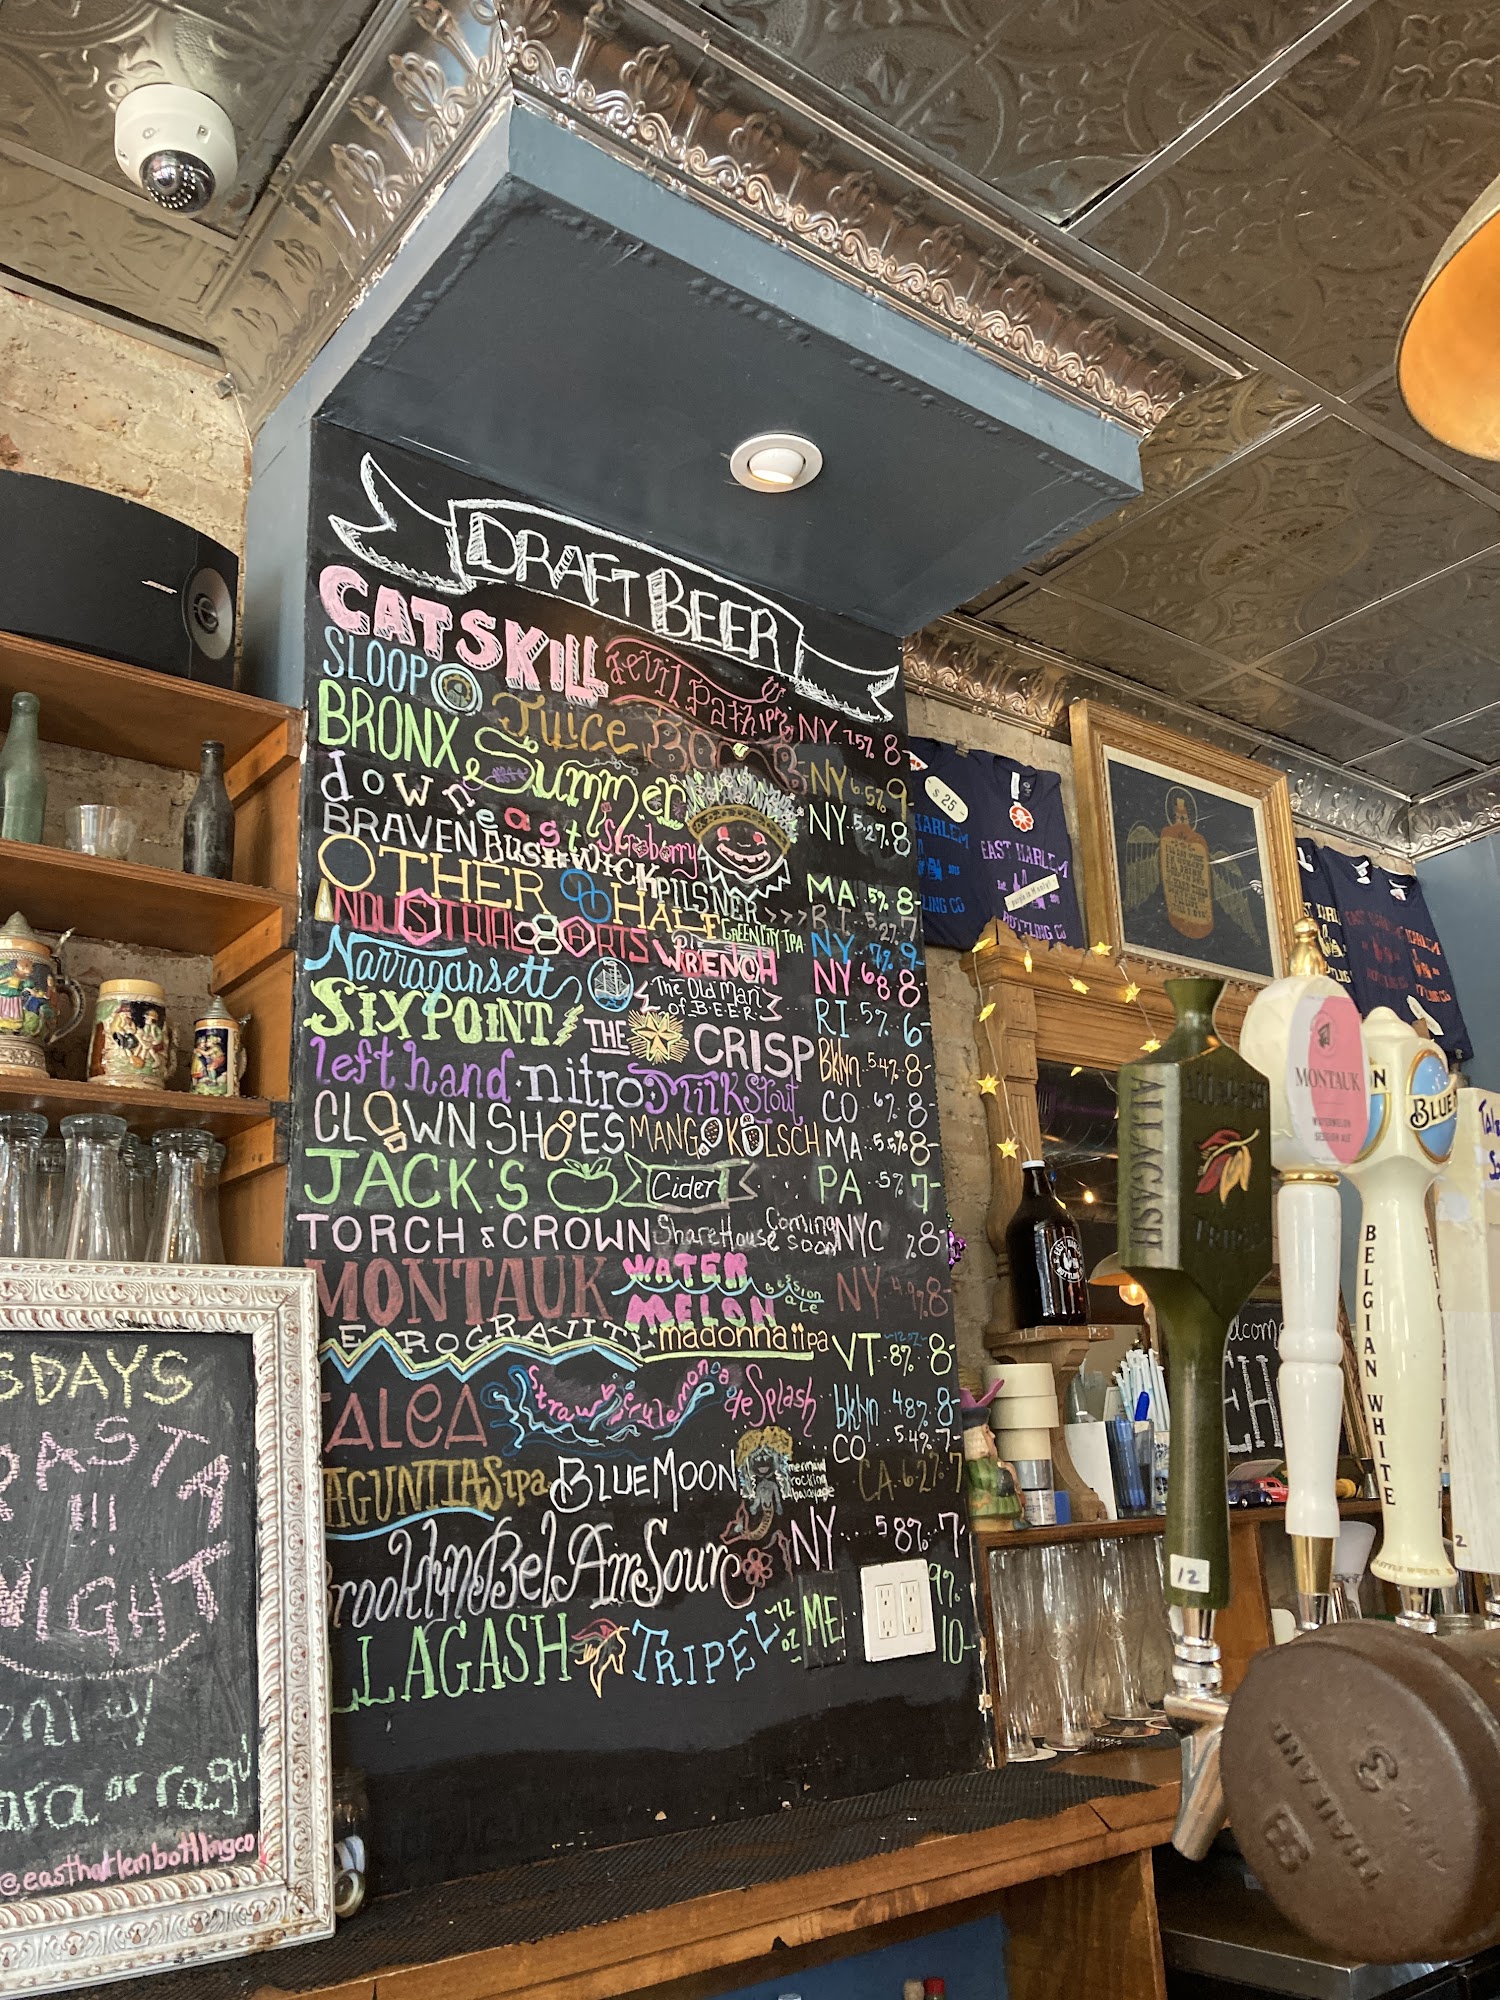 BOSE
DRAFT BEER
CATSKILL devil path ipa NY 7.5% 8-
SLOOP JUICE BOMB NY 6.5% 9-
BRONX Summer NY 5.2% 8
down east strawberry MA 5% 8-
BRAVEN BUSHWICK PILSNER >>> RI 5.2% 7
OTHER HALF GREEN CITY IPA NY 7% 9-
INDUSTRIAL ARTS WRENCH NY 6.8 8-
Narragansett The Old Man of B.E.E.R. RI 5% 6-
SIXPOINT THE CRISP Bklyn 5.4% 8-
left hand nitro Milk Stout CO 6% 8-
CLOWN SHOES MANGO KOLSCH MA 5.5% 8-
JACK'S Cider PA 5% 7-
TORCH & CROWN ShareHouse Coming Soon NYC % 8-
MONTAUK WATER MELON session ale NY 4.9% 8-
ZEROGRAVITY madonna iipa VT ~12oz~ 8% 8-
TALEA Strawberry lemonade Splash bklyn 4.8% 8-
BLUE MOON mermaid rocking CO 5.4% 7-
LAGUNITAS ipa CA 6.2% 7
Brooklyn Bel Air Sour NY 5.8% 7-
ALLAGASH TRIPEL ~12 oz~ ME 9% 10-
SDAYS
OAST
!!!
NIGHT
or ragu
@eastharlembottlingco
$25
HARLEM
LING CO
EAST HARLEM
BOTTLING CO
EAST HAR
ALLAGASH
TRIPEL
12
MONTAUK
WATERMELON
SESSION ALE
BLUE
BELGIAN WHITE
2
Welcome
EAST HARLEM
BOTTLING CO
THAILAND